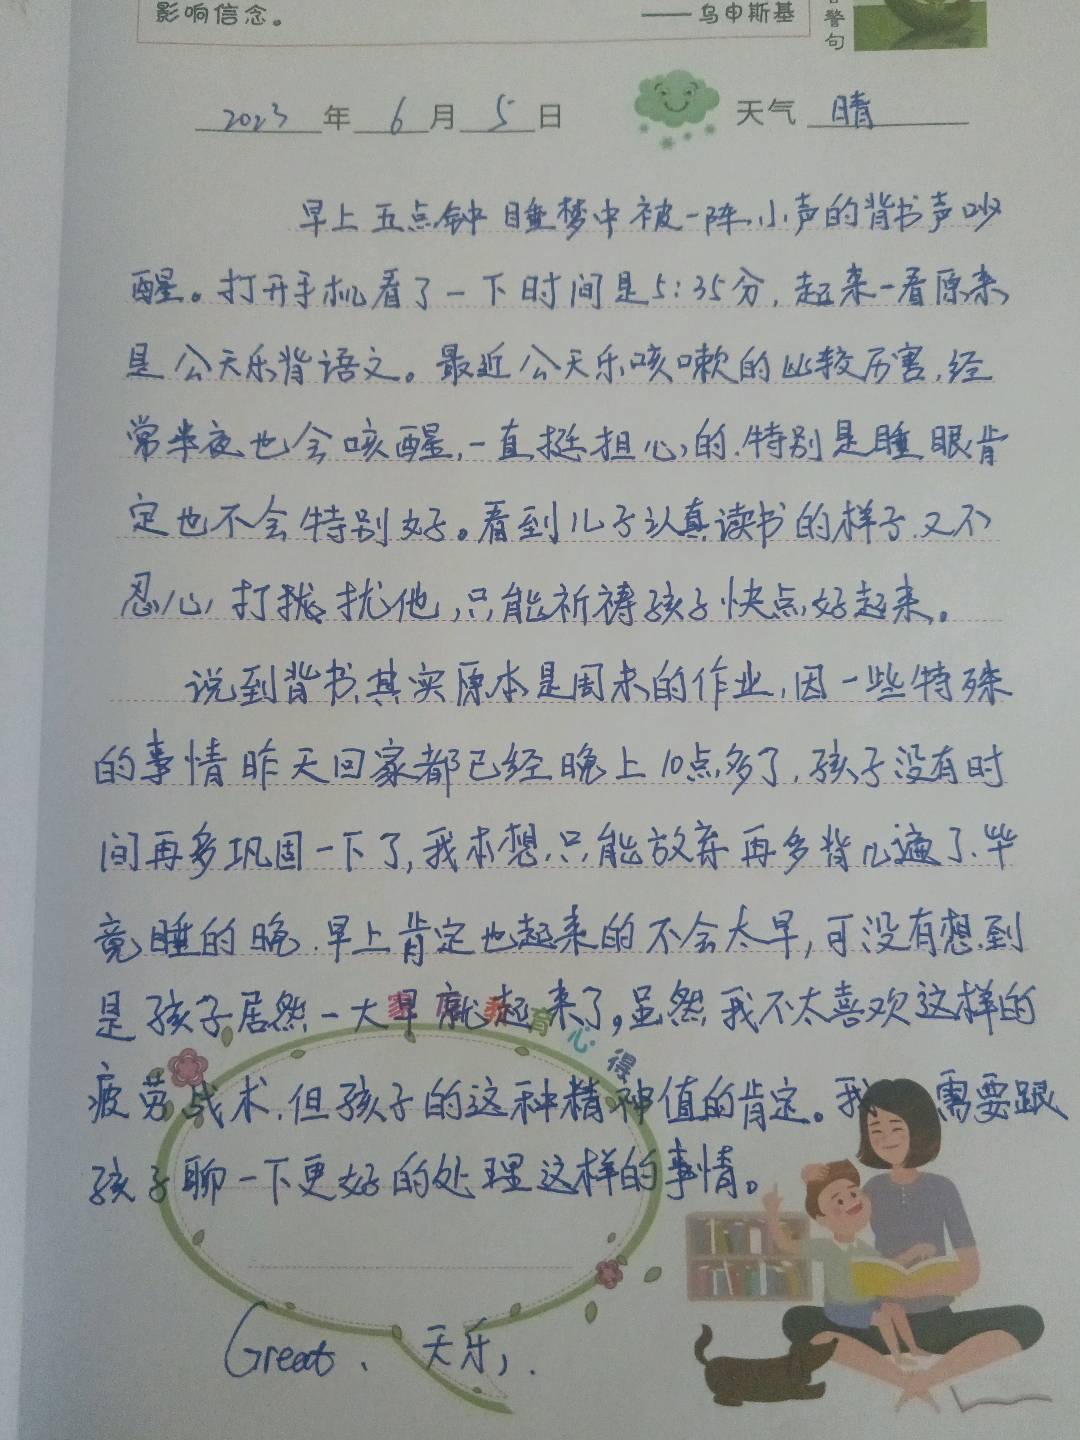 影响信念。
——乌申斯基
警
句
2023年6月5日 天气 晴
早上五点钟睡梦中被一阵小声的背书声吵
醒。打开手机看了一下时间是5:35分,起来一看原来
是公天乐背语文。最近公天乐咳嗽的比较厉害,经
常半夜也会咳醒,一直挺担心的.特别是睡眠肯
定也不会特别好。看到儿子认真读书的样子.又不
忍心打扰他,只能祈祷孩子快点好起来。
说到背书,其实原本是周末的作业,因一些特殊
的事情昨天回家都已经晚上10点多了,孩子没有时
间再多巩固一下了,我本想.只能放弃再多背几遍了.毕
竟睡的晚.早上肯定也起来的不会太早,可没有想到
是孩子居然一大早就起来了。虽然我不太喜欢这样的
疲劳战术.但孩子的这种精神值的肯定。我 需要跟
孩子聊一下更好的处理这样的事情。
育心得
Great、天乐,.